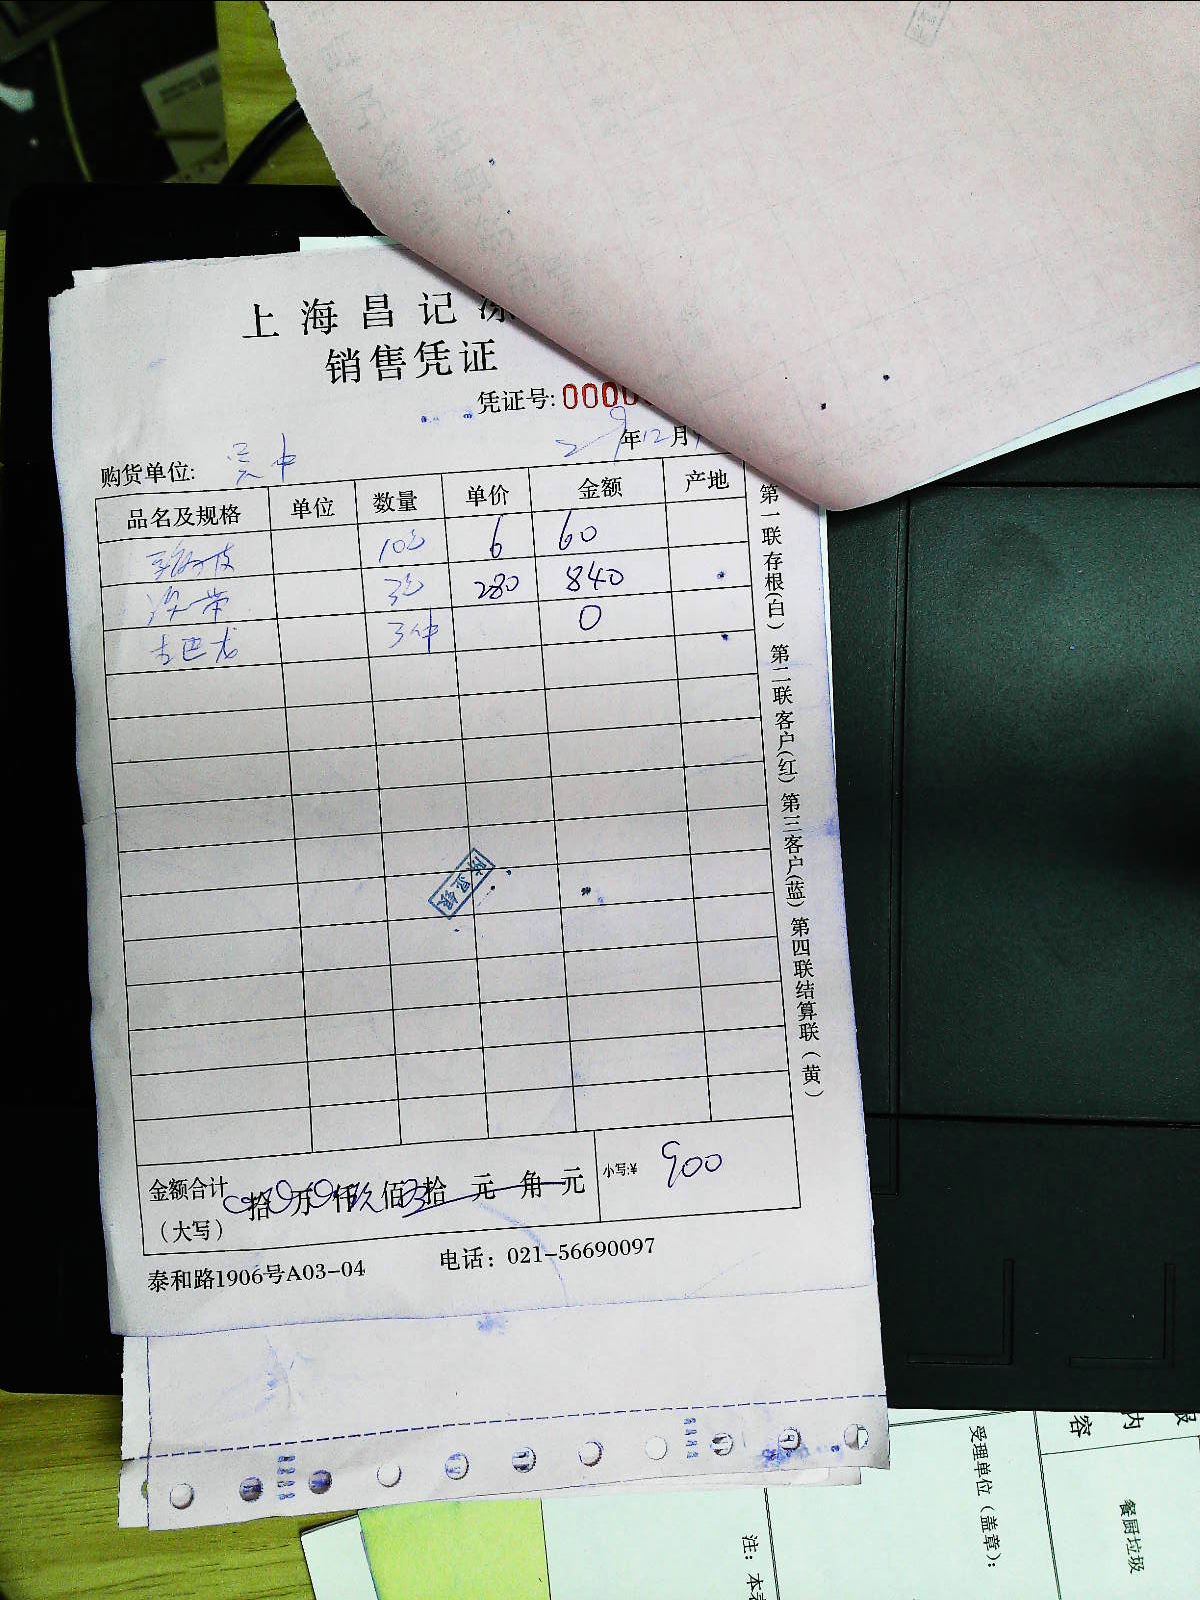 上海昌记
销售凭证
凭证号: 000
年12月
购货单位: 吴中
品名及规格 单位 数量 单价 金额 产地
10 6 60
280 840
古巴龙 3件 0
第一联存根(白) 第二联客户(红) 第三客户(蓝) 第四联结算联(黄)
金额合计 拾万仟玖佰拾元角元 小写:¥ 900
(大写)
泰和路1906号A03-04 电话: 021-56690097
内
容
受理单位(盖章):
餐厨垃圾
注: 本